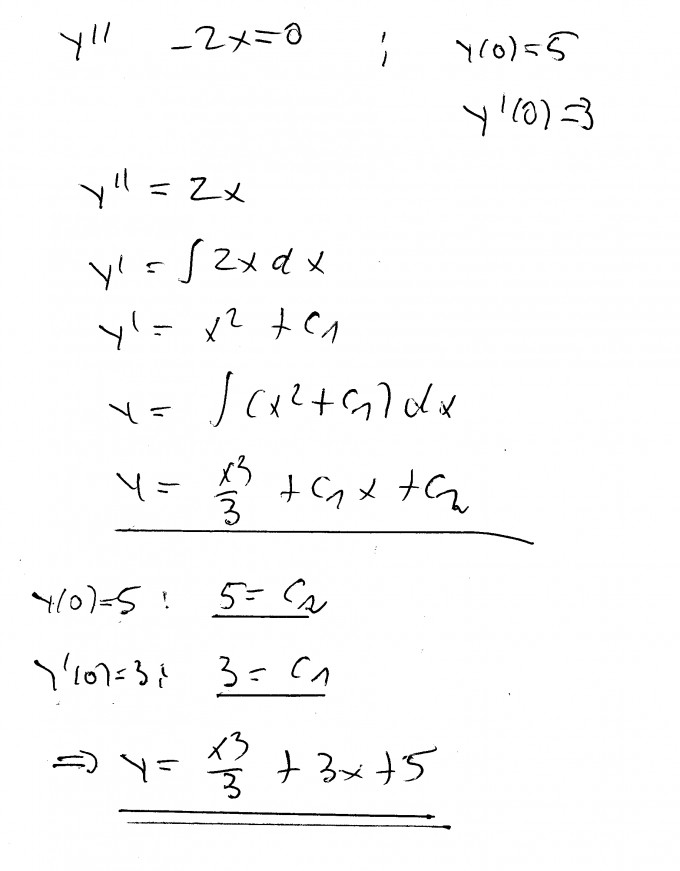 y'' -2x=0 ; y(0)=5
y'(0)=3
y'' = 2x
y' = ∫ 2x dx
y' = x² + C₁
y = ∫ (x²+C₁) dx
y = x³/3 + C₁ x + C₂
y(0)=5 : 5 = C₂
y'(0)=3 : 3 = C₁
⇒ y = x³/3 + 3x + 5